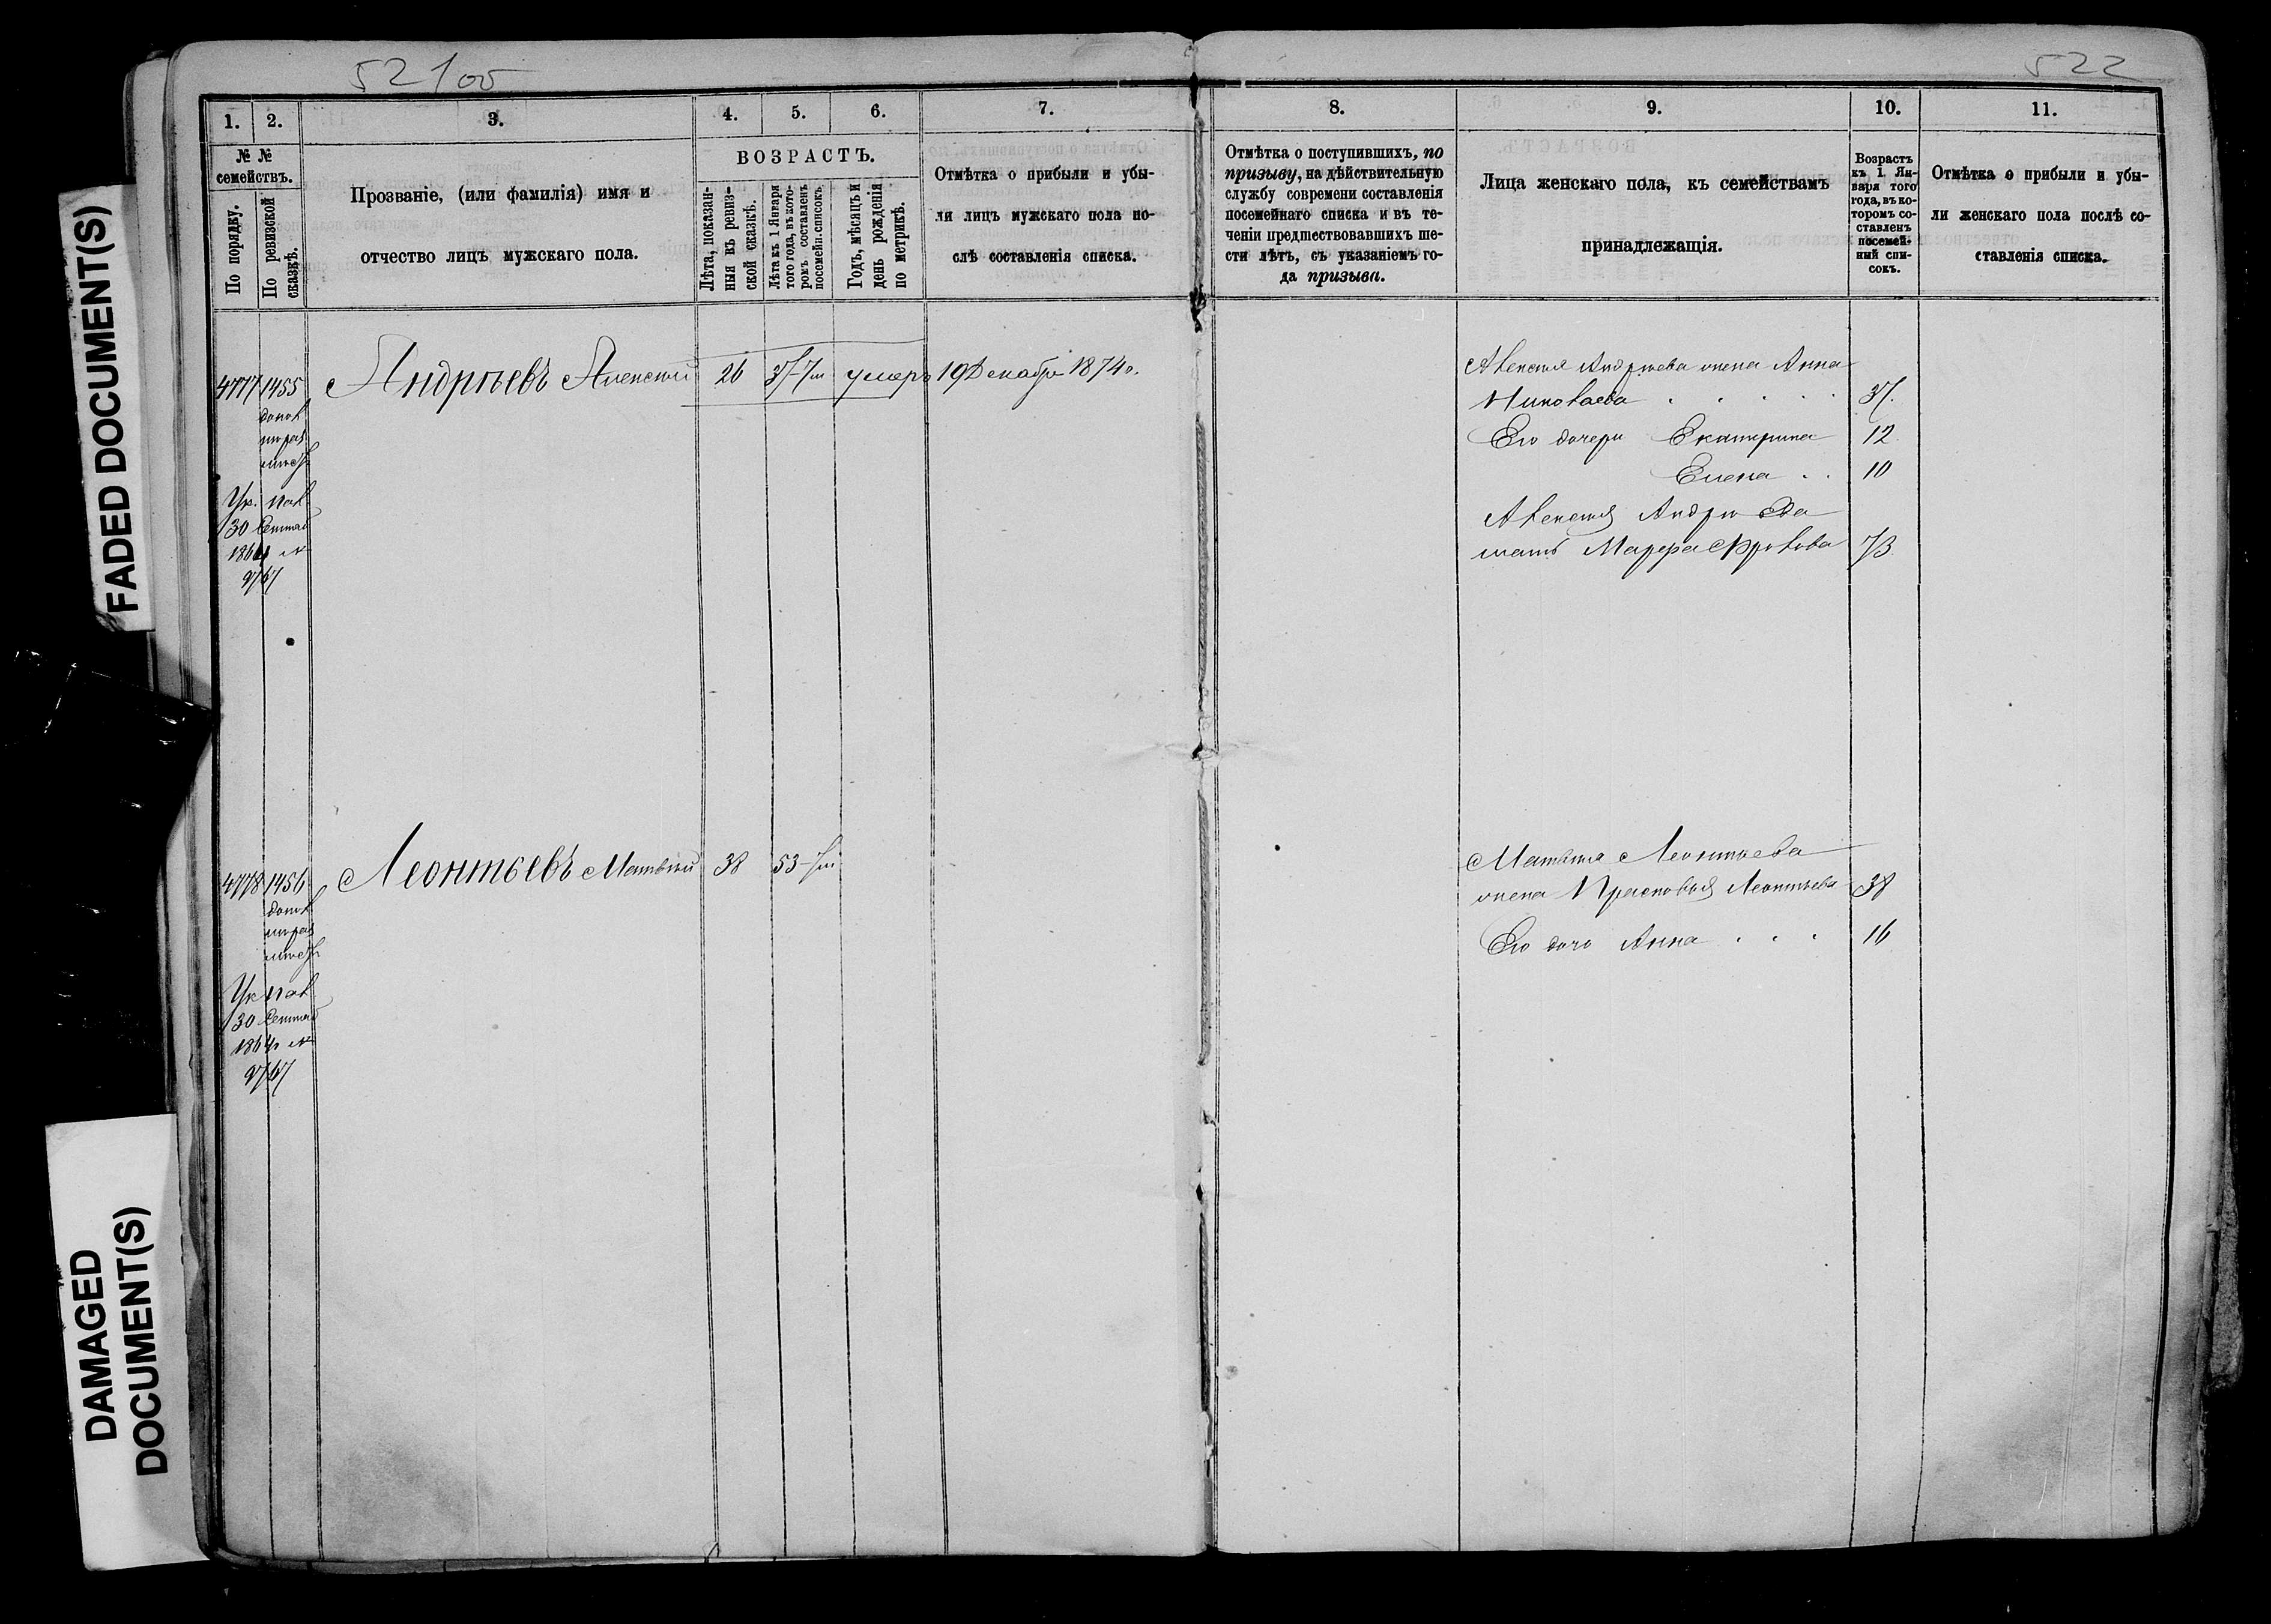 521об
522
1. 2. 3. 4. 5. 6. 7. 8. 9. 10. 11.
№ №
семействъ.
По порядку.
По ревизской
сказкѣ.
Прозваніе, (или фамилія) имя и
отчество лицъ мужскаго пола.
ВОЗРАСТЪ.
Лѣта, показан-
ныя въ ревиз-
ской сказкѣ.
Лѣта къ 1 Января
того года, въ кото-
ромъ составленъ
посемейн. списокъ.
Годъ, мѣсяцъ и
день рожденія
по метрикѣ.
Отмѣтка о прибыли и убы-
ли лицъ мужскаго пола по-
слѣ составленія списка.
Отмѣтка о поступившихъ, по
призыву, на дѣйствительную
службу современи составленія
посемейнаго списка и въ те-
ченіи предшествовавшихъ ше-
сти лѣтъ, съ указаніемъ го-
да призыва.
Лица женскаго пола, къ семействамъ
принадлежащія.
Возрастъ
къ 1 Ян-
варя того
года, въ ко-
торомъ со-
ставленъ
посемей-
ный спи-
сокъ.
Отмѣтка о прибыли и убы-
ли женскаго пола послѣ со-
ставленія списка.
4777 1455 Андрѣевъ Алексѣй 26 37 умеръ 19 Декабря 1874 г.
Ук. пал
30 Сентяб
1864 г №
9767
Алексѣя Андрѣева жена Анна
Николаева 37.
Его дочери Екатерина 12
Елена 10
Алексѣя Андрѣева
мать Марфа Фролова 73
4778 1456 Леонтьевъ Матвѣй 38 53
Ук пал
30 Сентяб
1864 г №
9767
Матвѣя Леонтьева
жена Прасковья Леонтьева 38
Его дочь Анна 16
FADED DOCUMENT(S)
DAMAGED
DOCUMENT(S)